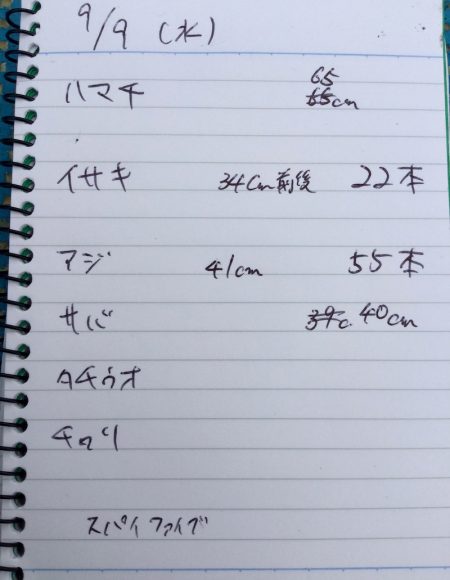 9/9 (水)
65
ハマチ 55cm
イサキ 34cm前後 22本
アジ 41cm 55本
サバ 39c 40cm
タチウオ
チヌリ
スパイファイブ